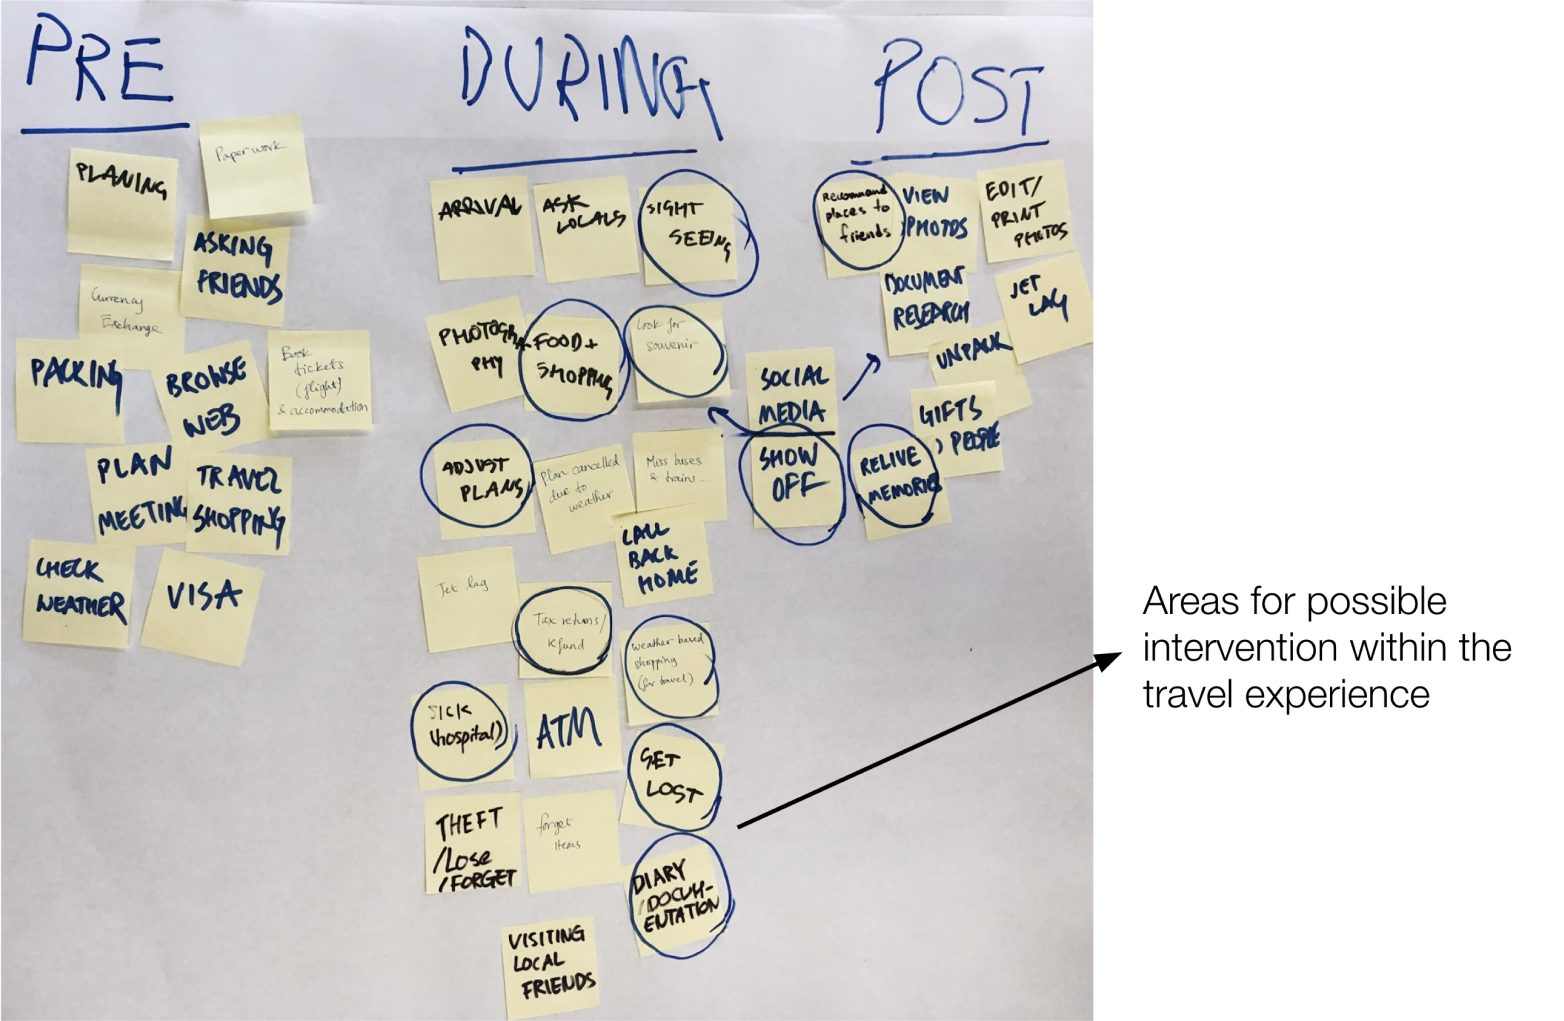 PRE
DURING
POST
PLANING
Paperwork
ASKING
FRIENDS
Currency
Exchange
PACKING
BROWSE
WEB
Book
tickets
(flight)
& accommodation
PLAN
MEETING
TRAVEL
SHOPPING
CHECK
WEATHER
VISA
ARRIVAL
ASK
LOCALS
SIGHT
SEEING
PHOTOGRA
PHY
FOOD +
SHOPPING
Look for
souvenir
ADJUST
PLANS
Plan cancelled
due to
weather
Miss buses
& trains...
CALL
BACK
HOME
Jet lag
Tax returns/
refund
weather based
shopping
(for travel)
SICK
(hospital)
ATM
GET
LOST
THEFT
/Lose
/FORGET
forget
items
DIARY
/DOCUM-
ENTATION
VISITING
LOCAL
FRIENDS
SOCIAL
MEDIA
SHOW
OFF
Recommand
places to
friends
VIEW
PHOTOS
EDIT/
PRINT
PHOTOS
DOCUMENT
RESEARCH
JET
LAG
UNPACK
GIFTS
PEOPLE
RELIVE
MEMORIES
Areas for possible
intervention within the
travel experience